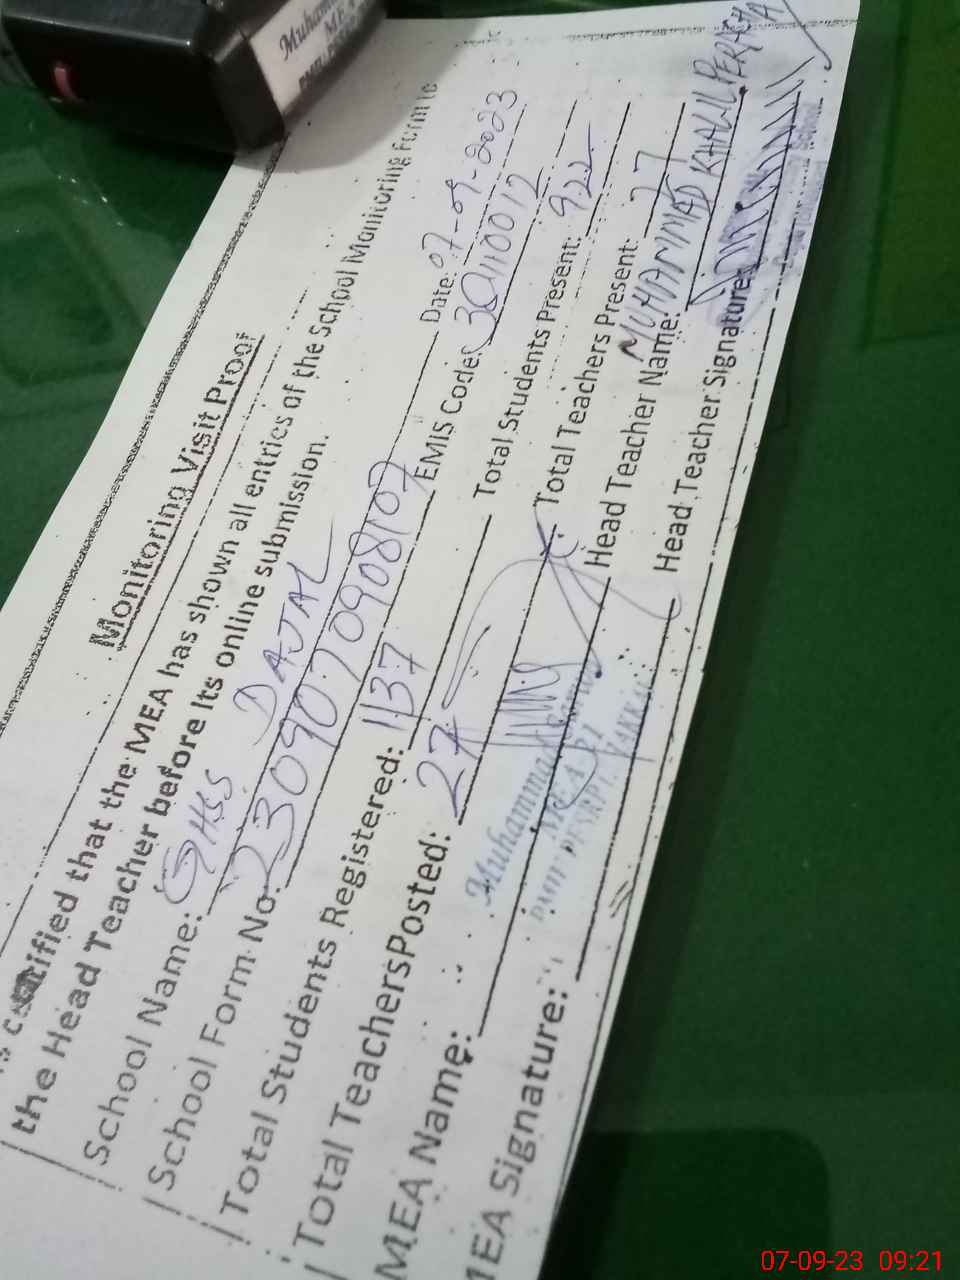 Monitoring Visit Proof
certified that the MEA has shown all entries of the School Monitoring Form to
the Head Teacher before Its online submission.
School Name: GHSS DAJAL Date: 07-09-2023
School Form No: 2309070908107 EMIS Code: 
Total Students Registered: 1137 Total Students Present: 922
Total TeachersPosted: 27 Total Teachers Present: 
MEA Name: Muhammad Head Teacher Name: MUHAMMAD KHALIL PERACHA
MEA Signature: Head Teacher Signature:
07-09-23 09:21